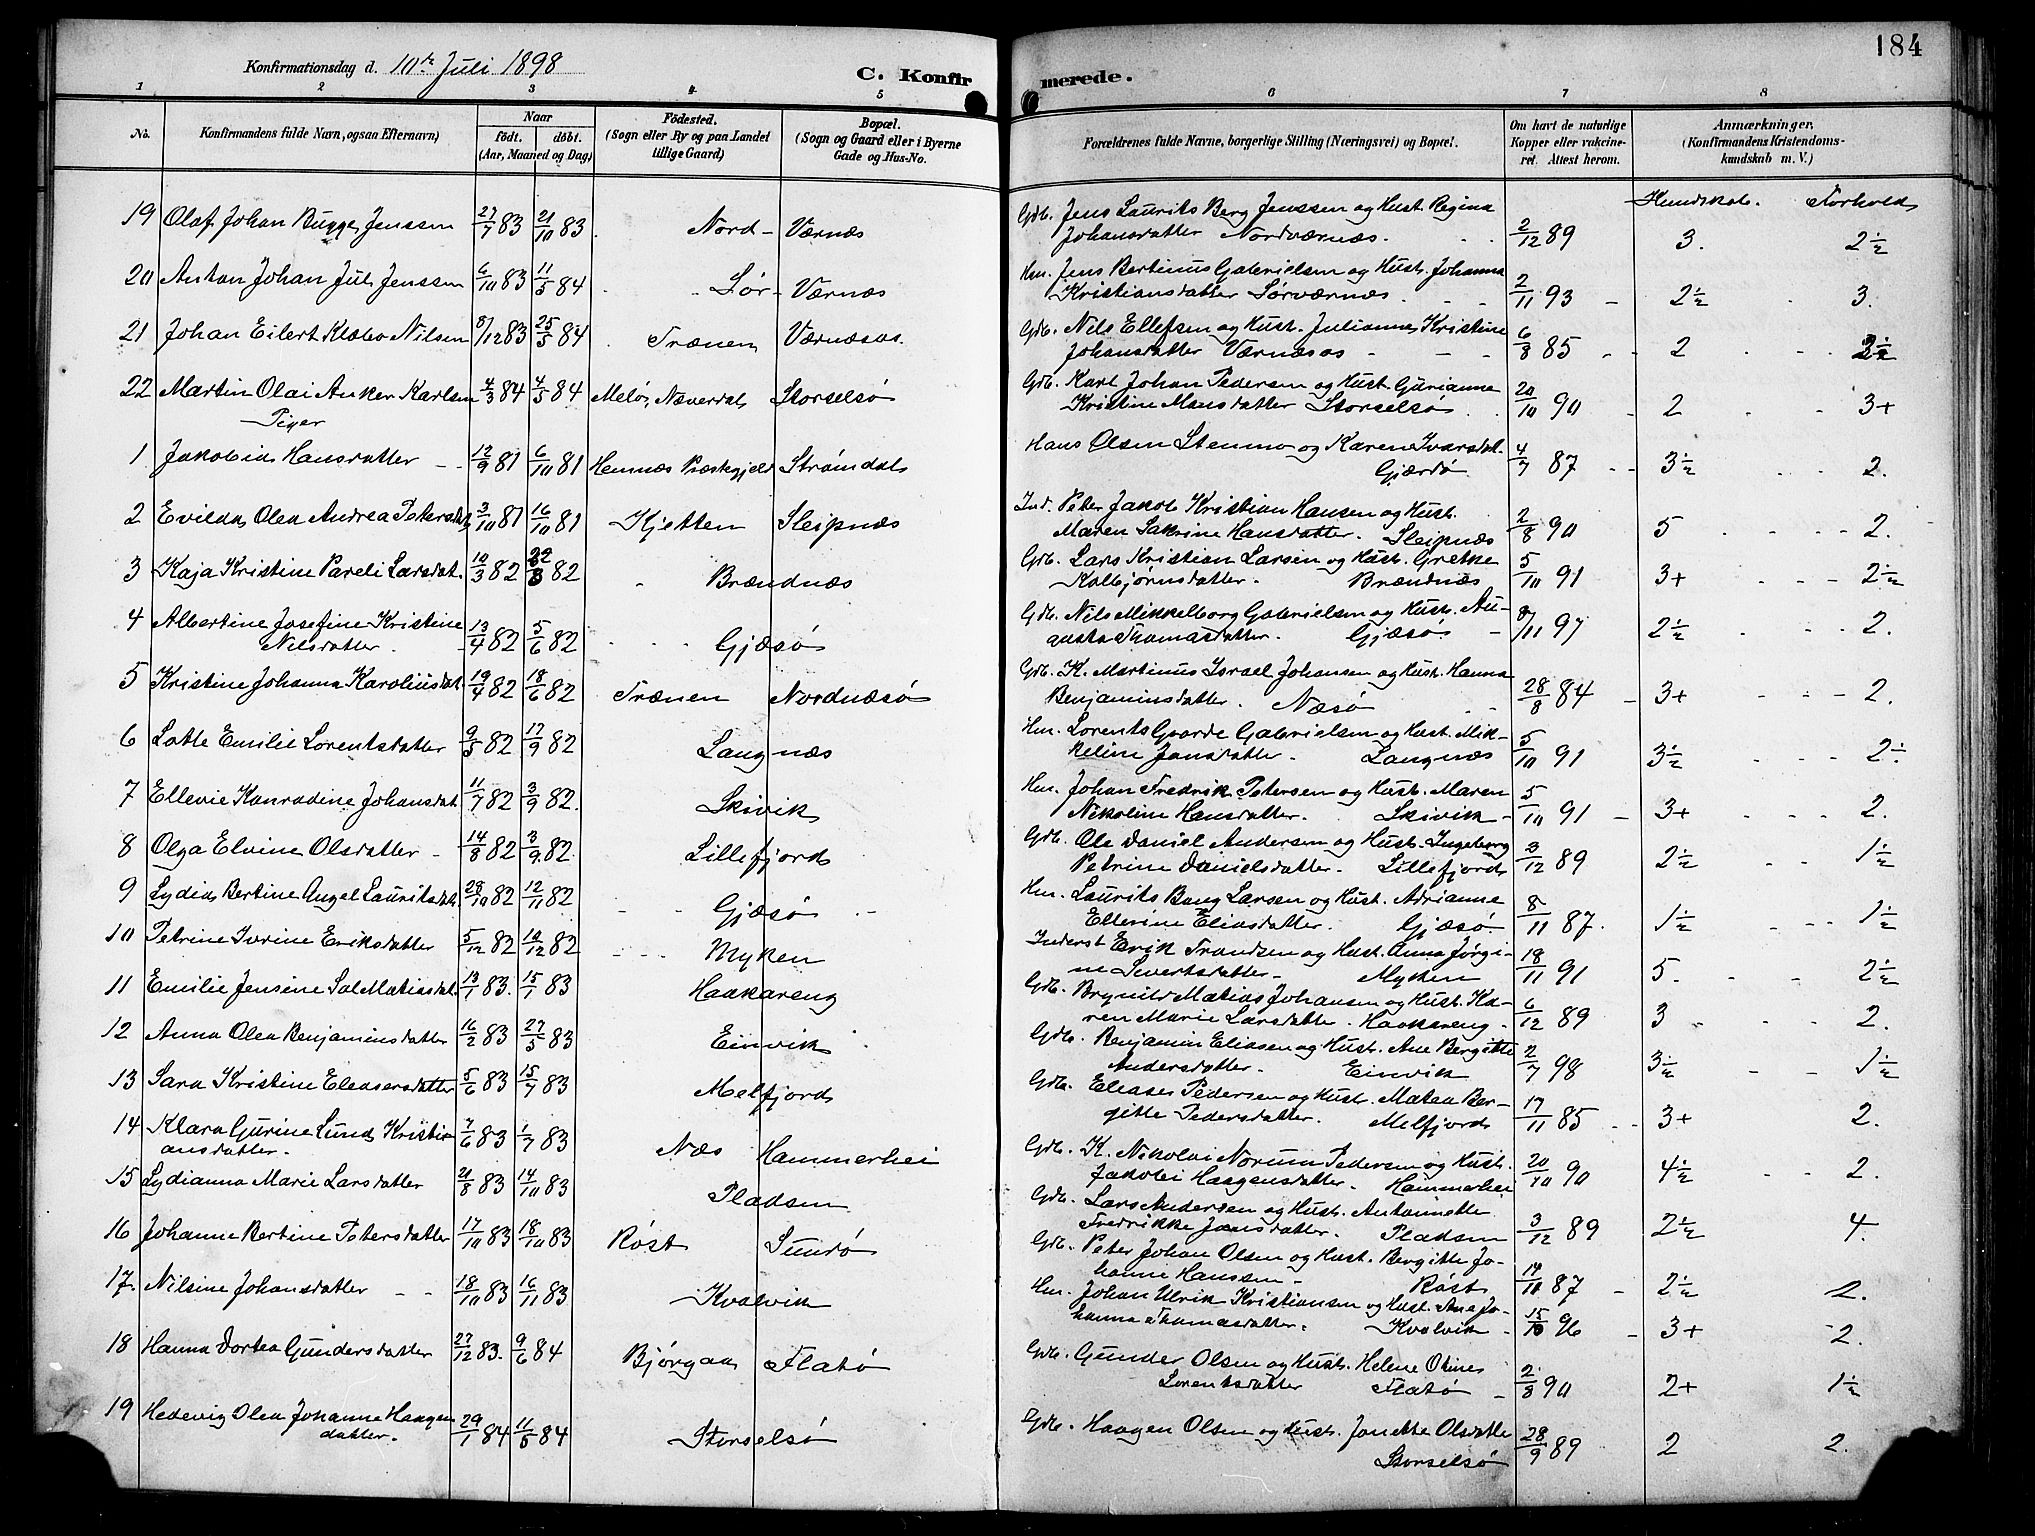 184
Konfirmationsdag d. 10de Juli 1898
C. Konfirmerede.
1 2 3 4 5 6 7 8
No.
Konfirmandens fulde Navn, ogsaa Efternavn)
Naar
födt. döbt.
(Aar, Maaned og Dag)
Födested.
(Sogn eller By og paa Landet
tillige Gaard)
Bopæl.
(Sogn og Gaard eller i Byerne
Gade og Hus-No.
Forældrenes fulde Navne, borgerlige Stilling (Næringsvei) og Bopæl.
Om havt de naturlige
Kopper eller vakcine-
ret. Attest herom.
Anmærkninger,
(Konfirmandens Kristendoms-
kundskab m. V.)
Kundskab. Forhold
19 Olaf Johan Bugge Jenssen 27/7 83 21/10 83 Nord- Værnæs Gdb. Jens Laurits Berg Jenssen og Hust. Regina
Johansdatter Nordværnæs. 2/12 89 3. 2½
20 Anton Johan Juls Jenssen 6/10 83 11/5 84 Sør- Værnæs Hm. Jens Bertinus Gabrielsen og Hust. Johanna
Kristiansdatter Sørværnæs 2/11 93 2½ 3.
21 Johan Eilert Klæbo Nilsen 8/12 83 25/5 84 Trænen Værnæsos. Gdb. Nils Ellefsen og Hust. Julianna Kristine
Johansdatter Værnæsos 6/8 85 2
22 Martin Olai Anker Karlsen 4/3 84 4/5 84 Melø, Næverdal Storselsø Gdb. Karl Johan Pedersen og Hust. Gurianne
Kristine Mansdatter Storselsø 20/10 90 2 3+
Piger
1 Jakobia Hansdatter 12/9 81 6/10 81 Hemnæs Præstegjeld Strømdal Hans Olsen Stenmo og Karen Ivarsdat.
Gjærdø 4/7 87 3½ 2.
2 Evilda Olea Andrea Petersdat. 3/10 81 16/10 81 Kjetten Sleipnæs Ind. Peter Jakob Kristian Hansen og Hust.
Maren Sakrine Hansdatter. Sleipnæs 2/8 90 5 2.
3 Kaja Kristine Pareli Larsdat. 10/3 82 82 Brændnæs Gdb. Lars Kristian Larsen og Hust. Grethe
Kolbjørnsdatter. Brændnæs 5/10 91 3+ 2½
4 Albertine Josefine Kristine
Nilsdatter. 13/4 82 5/6 82 Gjæsø Gdb. Nils Mikkelborg Gabrielsen og Hust. Au-
gusta Thomasdatter. Gjæsø 8/11 97 2½ 2.
5 Kristine Johanna Karoliusdat. 19/4 82 18/6 82 Trænen Nordnæsø Gdb. K. Martinus Israel Johansen og Hust. Hanna
Benjaminsdatter. Næsø 28/8 84 3+ 2.
6 Lotte Emilie Lorentsdatter 9/5 82 17/9 82 Langnæs Hm. Lorents Gaarde Gabrielsen og Hust. Mik-
keline Jansdatter. Langnæs 5/10 91 3½ 2½
7 Ellevie Konradine Johansdat. 11/7 82 3/9 82. Skivik Hm. Johan Fredrik Petersen og Hust. Maren
Nikoline Hansdatter. Skivik 5/10 91 3+ 2.
8 Olga Elvine Olsdatter 14/8 82 3/9 82. Lillefjord Gdb. Ole Daniel Andersen og Hust. Ingeborg
Petrine Danielsdatter. Lillefjord 3/12 89 2½ 1½
9 Lydia Bertine Angel Lauritsdat. 28/10 82 12/11 82 Gjæsø Hm. Laurits Bang Larsen og Hust. Adrianne
Elterine Eliasdatter. Gjæsø. 8/11 87. 1½ 1½
10 Petrine Ivrine Eriksdatter 5/12 82 10/12 82 Myken Inderst Erik Trondsen og Hust. Anna Jørgi-
ne Sivertsdatter Myken 18/11 91 5. 2½
11 Emilie Jensine Sol Matiasdat. 13/1 83. 15/1 83 Haakareng Gdb. Brynild Matias Johansen og Hust. Ka-
ren Marie Larsdatter. Haakareng. 6/12 89 3 2.
12 Anna Olea Benjaminsdatter 16/2 83 27/5 83 Einvik Gdb. Benjamin Eliasen og Hust. Ane Bergitte
Andersdatter. Einvik 2/7 98 3½ 1½
13 Sara Kristine Eleasersdatter 5/6 83 15/7 83 Melfjord Gdb. Eleaser Pedersen og Hust. Matea Ber-
gitte Pedersdatter. Melfjord 17/11 85 3+ 2.
14 Klara Gurine Lund Kristi-
ansdatter. 7/6 83 1/7 83 Næs Hammerhei Gdb. K. Nikolai Norum Pedersen og Hust.
Jakobi Haagensdatter. Hammerhei 20/10 90 4½ 2.
15 Lydianna Marie Larsdatter 21/8 83 14/10 83 Pladsen Gdb. Lars Andersen og Hust. Antonette
Fredrikke Jonsdatter. Pladsen 3/12 89 2½ 4.
16 Johanne Bertine Petersdatter 17/10 83 18/10 83 Røst Sundø Gdb. Peter Johan Olsen og Hust. Bergitte Jo-
hanne Hanssen. Røst 87 2½ 2.
17. Nilsine Johansdatter 18/10 83 16/11 83 Kvalvik Hm. Johan Ulrik Kristiansen og Hust. Ane Jo-
hanna Thomasdatter. Kvalvik 15/10 96 3+ 2.
18 Hanna Dortea Gundersdatter 27/12 83. 9/6 84 Bjørgaa Flatø Gdb. Gunder Olsen og Hust. Helene
Lorentsdatter Flatø 2/8 90 2+ 1½
19 Hedevig Olea Johanne Haagens
datter. 29/1 84 11/5 84 Storselsø Gdb. Haagen Olsen og Hust. Jonette Olsdatter
Storselsø 28/9 89 2 2.